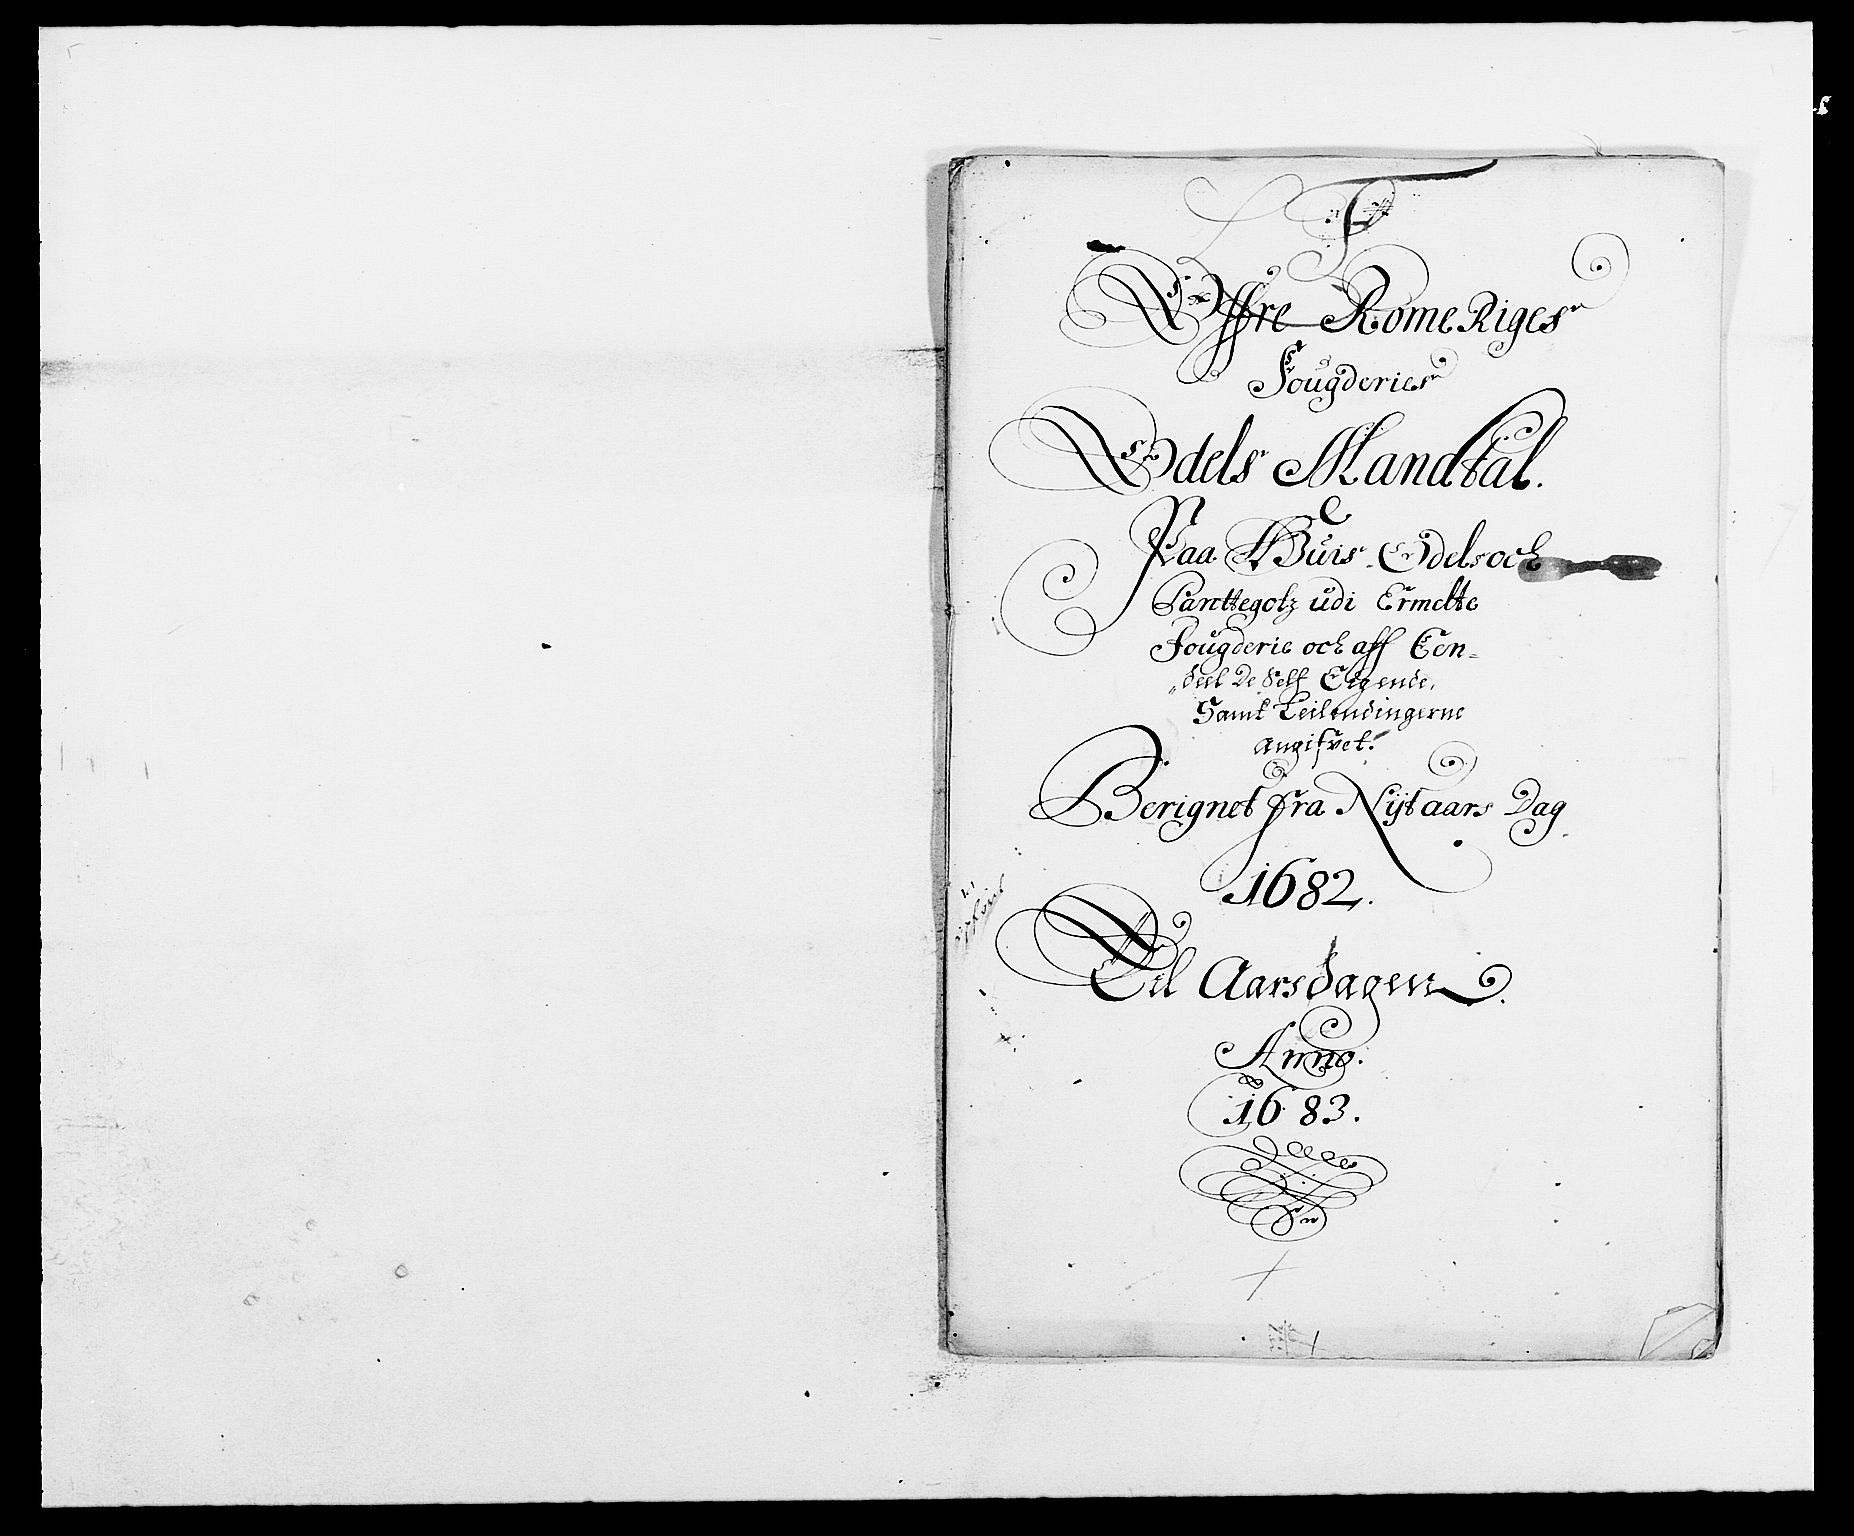 F
Öffre RomeRiges
Fougderies
Odels Mandtal.
Paa Huis Odels och
Panttegotz udi Ermelte
Fougderie och aff Een-
deel De Self Eigende,
Samt Leilendingerne
Angifvet.
Berignet fra Nijtaars Dag
1682.
Til Aarsdagen
Anno.
1683.